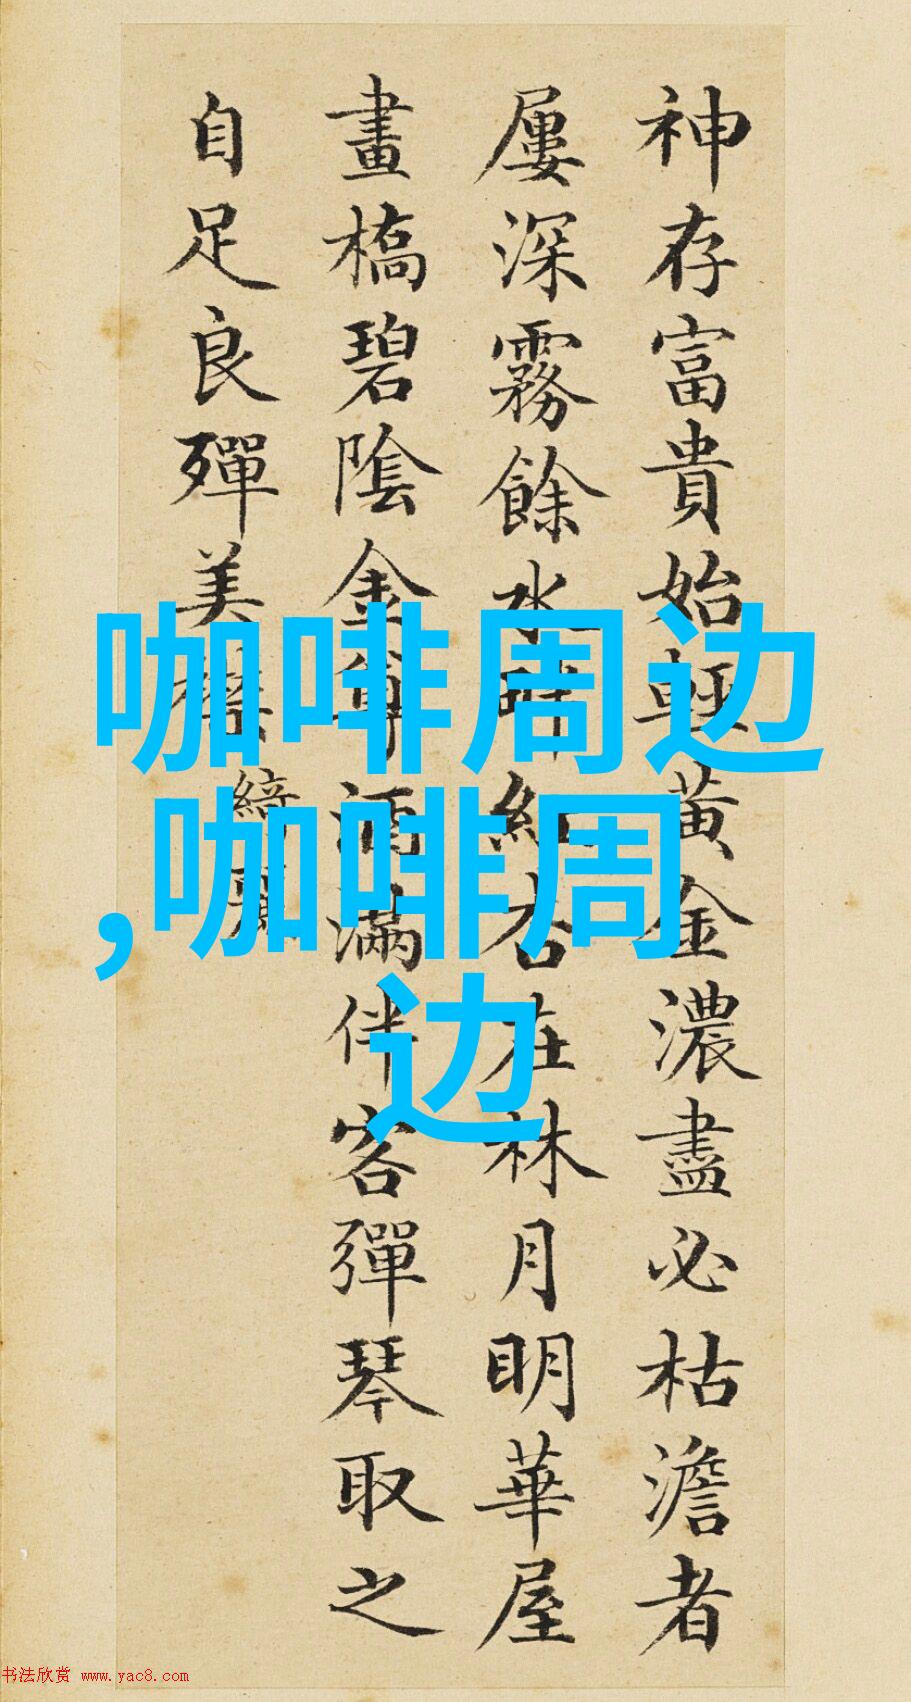 神存富貴始輕黃金濃盡必枯澹者
屢深霧餘水畔紅杏在林月明華屋
畫橋碧陰金尊酒滿伴客彈琴取之
自足良殫美襟
綺麗
咖啡周边
,咖啡周
边
书法欣赏 www.yac8.com